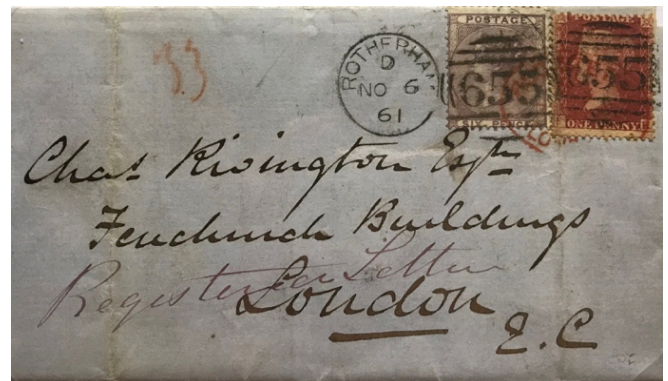 33
ROTHERHAM
D
NO 6
61
POSTAGE
635
SIX PENCE
POSTAGE
635
ONE PENNY
Chas Rivington Esqre
Fenchurch Buildings
Registered Letter
London
E.C